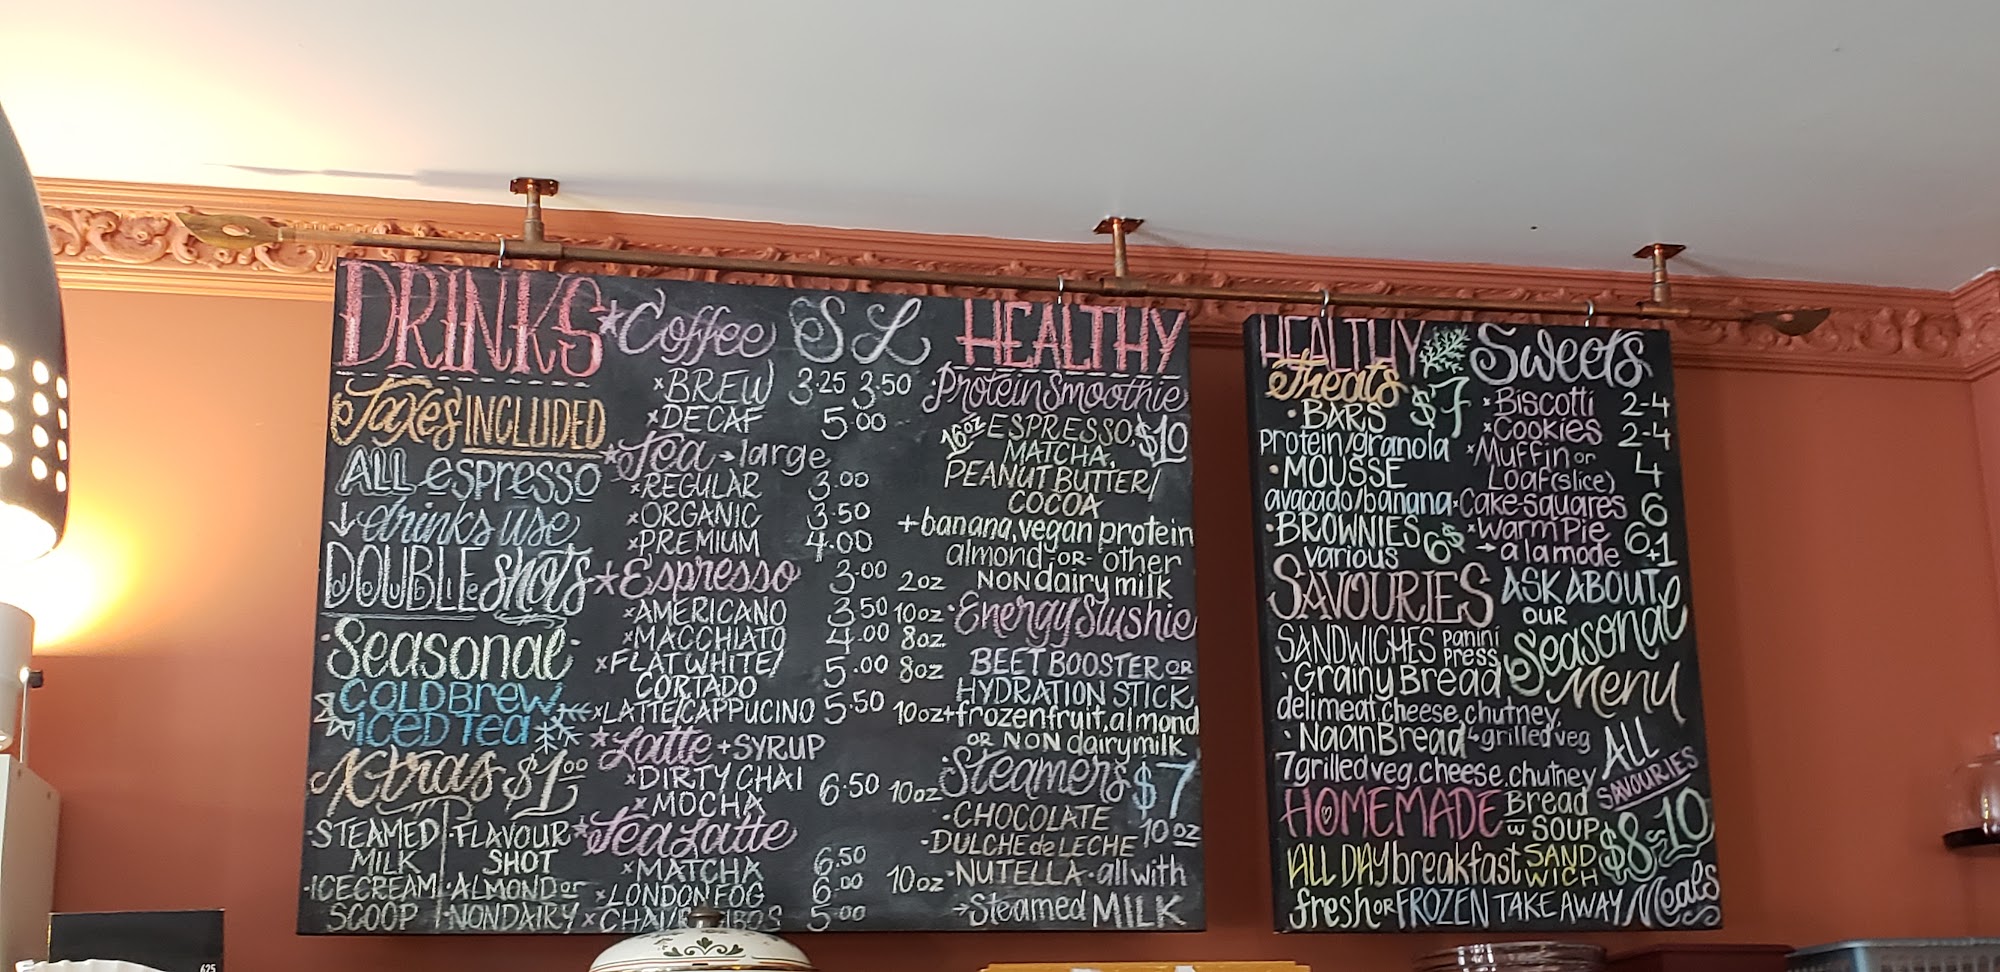 DRINKS
Taxes INCLUDED
ALL espresso
drinks use
DOUBLE shots
Seasonal
COLD Brew
ICED TEA
Xtras $1.00
·STEAMED MILK
·ICECREAM SCOOP
·FLAVOUR SHOT
·ALMOND or NONDAIRY
*Coffee S L
×BREW 3.25 3.50
×DECAF 5.00
*Tea → large
×REGULAR 3.00
×ORGANIC 3.50
×PREMIUM 4.00
*Espresso 3.00 2oz
×AMERICANO 3.50 10oz
×MACCHIATO 4.00 8oz
×FLAT WHITE/
CORTADO 5.00 8oz
×LATTE/CAPPUCINO 5.50 10oz
*Latte + SYRUP
×DIRTY CHAI 6.50 10oz
×MOCHA
*Tea Latte
×MATCHA 6.50
×LONDON FOG 6.00 10oz
×CHAI/ 5.00
HEALTHY
·Protein Smoothie
16oz ESPRESSO, $10
MATCHA,
PEANUT BUTTER/
COCOA
+banana, vegan protein
almond -OR- other
NON dairy milk
·Energy Slushie
BEET BOOSTER OR
HYDRATION STICK
+frozen fruit, almond
OR NON dairy milk
·Steamers $7
·CHOCOLATE 10oz
·DULCHE de LECHE
·NUTELLA · all with
→Steamed MILK
HEALTHY
Treats $7
·BARS
protein/granola
·MOUSSE
avacado/banana
·BROWNIES 6$
various
SAVOURIES
SANDWICHES panini press
·Grainy Bread
deli meat, cheese, chutney,
·Naan Bread grilled veg
grilled veg, cheese, chutney
ALL SAVOURIES
HOMEMADE Bread w SOUP $8-10
ALL DAY breakfast SANDWICH
fresh OR FROZEN TAKE AWAY Meals
Sweets
×Biscotti 2-4
×Cookies 2-4
×Muffin or
Loaf (slice) 4
×Cake-squares 6
×Warm Pie 6
→a la mode +1
ASK ABOUT
OUR
Seasonal
Menu
625